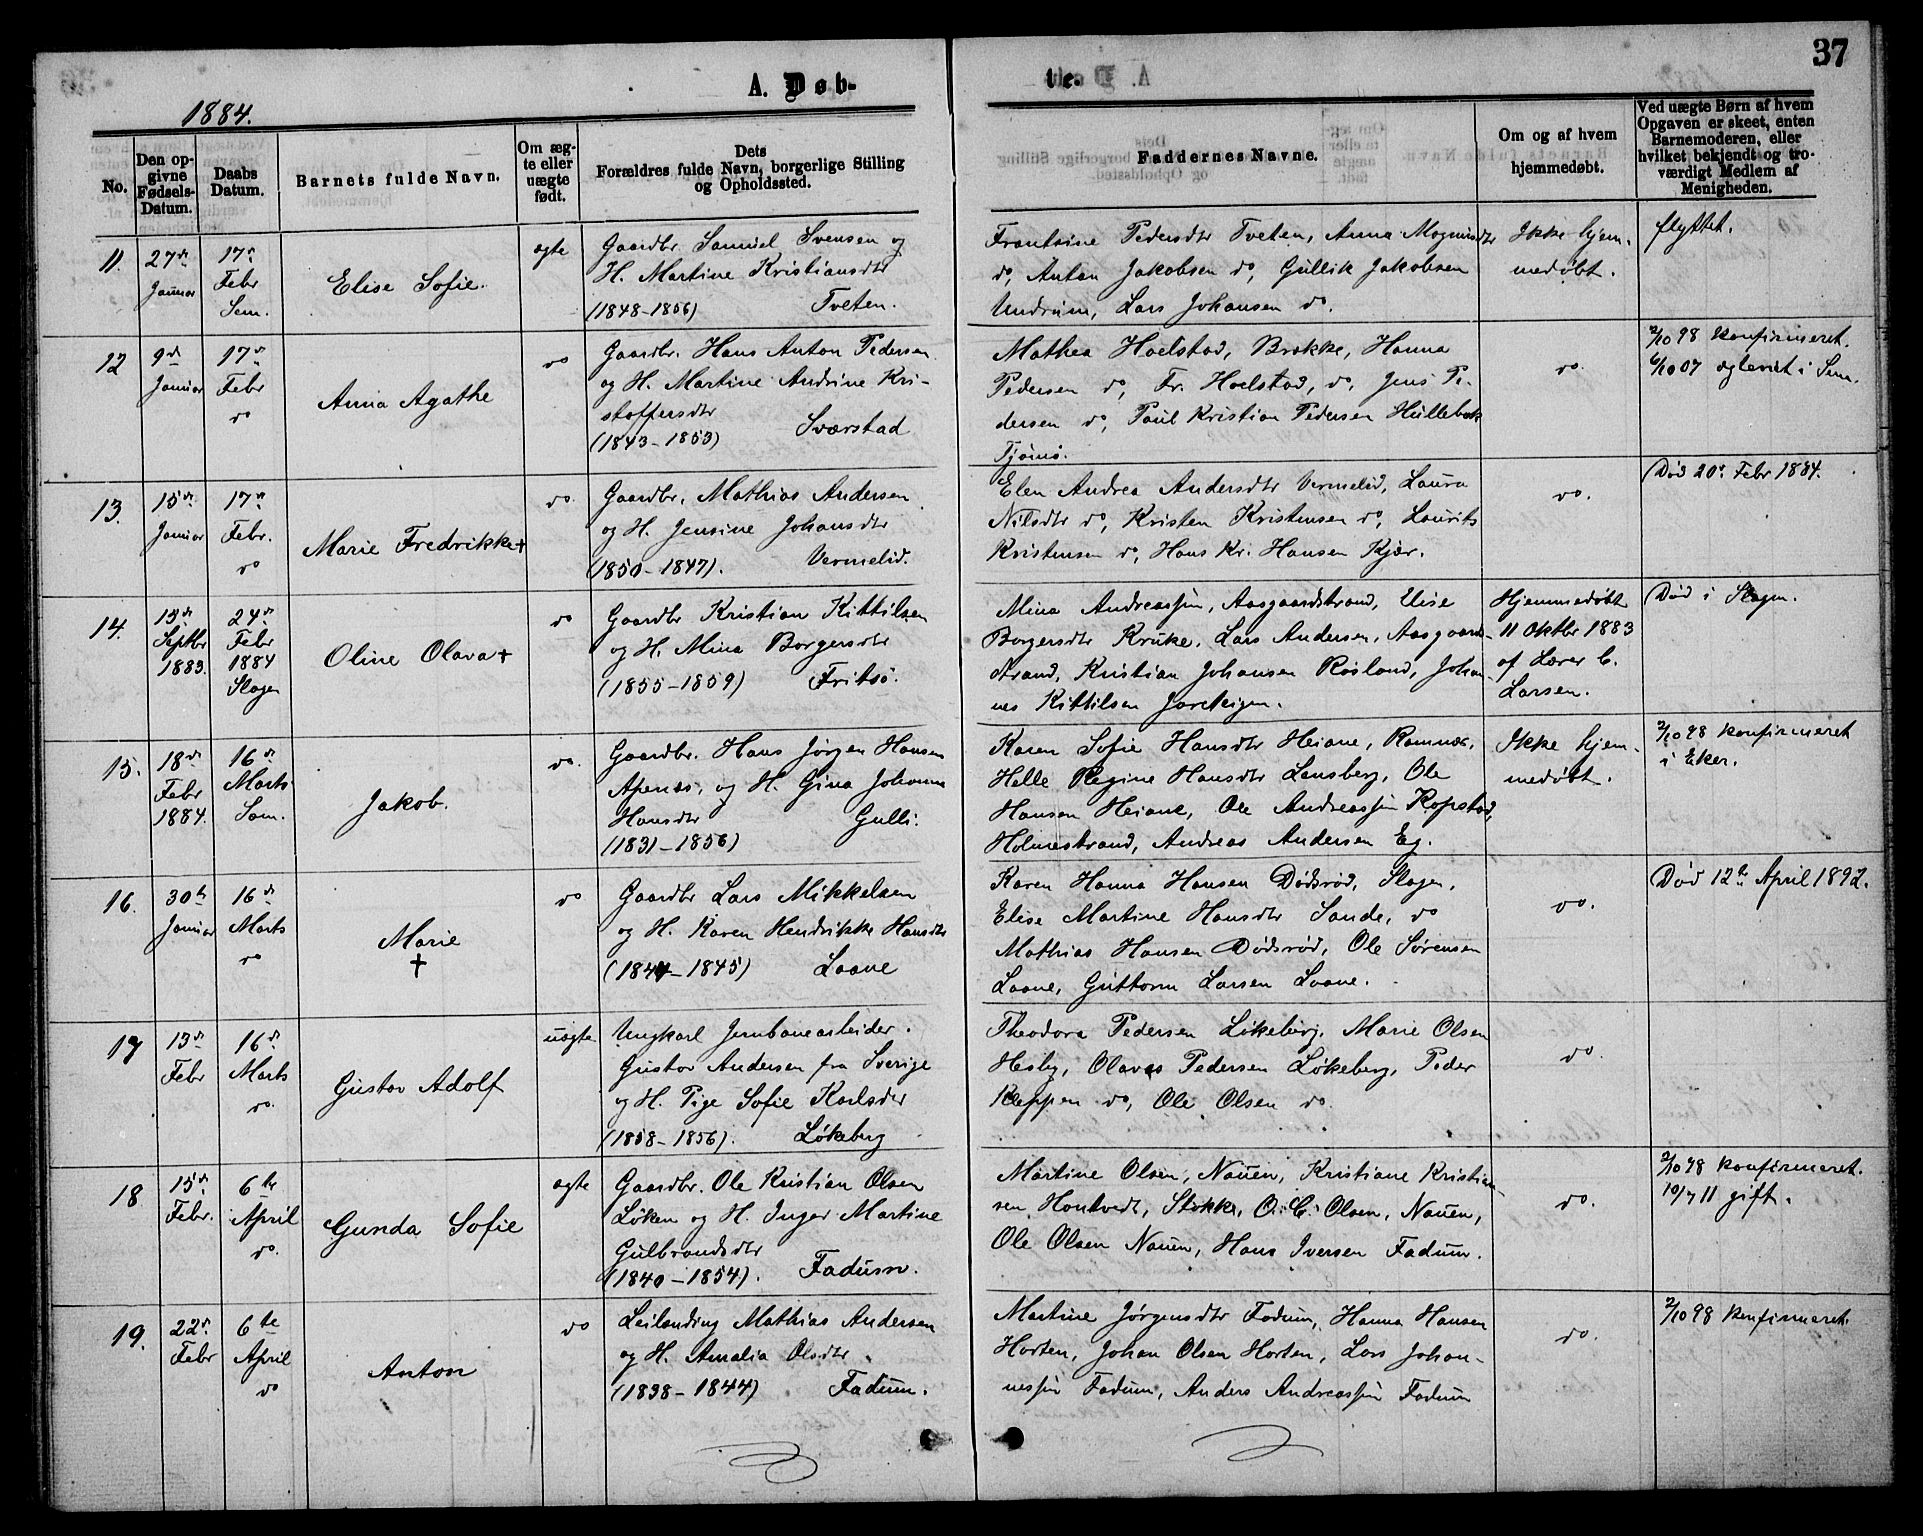 37
A. Døb-
te.
1884.
No.
Den op-
givne
Fødsels-
Datum.
Daabs
Datum.
Barnets fulde Navn.
Om æg-
te eller
uægte
født.
Dets
Forældres fulde Navn, borgerlige Stilling
og Opholdssted.
Faddernes Navne.
Om og af hvem
hjemmedøbt.
Ved uægte Børn af hvem
Opgaven er skeet, enten
Barnemoderen, eller
hvilket bekjendt og tro-
værdigt Medlem af
Menigheden.
11.
27de
Januar
17de
Febr
Sem.
Elise Sofie.
ægte
Gaardbr. Samuel Svensen og
H. Martine Kristiansdtr
(1848-1856) Tveten.
Frantsine Pedersdtr Tveten, Anna Magnusdtr
do, Anton Jakobsen do, Gullik Jakobsen
Undrum, Lars Johansen do.
Ikke hjem-
medøbt.
flyttet.
12
9de
Januar
17de
Febr
do
Anna Agathe
do
Gaardbr. Hans Anton Pedersen
og H. Martine Andrine Kri-
stoffersdtr
(1843-1853) Sværstad
Mathea Hoelstad, Brekke, Hanna
Pedersen do, Fr. Hoelstad, do, Jens Pe-
dersen do, Paul Kristian Pedersen Hullebak
Tjømø.
do.
2/10 98 konfirmeret.
6/10 07 ægteviet i Sem.
13.
15de
Januar
17de
Febr.
do
Marie Fredrikke +
do.
Gaardbr. Mathias Andersen
og H. Jensine Johansdtr
(1850-1847). Vermelid.
Elen Andrea Andersdtr Vermelid, Laura
Nilsdtr do, Kristen Kristensen do, Laurits
Kristensen do, Hans Kr. Hansen Kjær.
do.
Død 20de Febr 1884.
14.
13de
Septbr
1883.
24de
Febr
1884
Slagen
Oline Olava +
do
Gaardbr Kristian Kittilsen
og H. Mina Borgersdtr
(1855-1859) Fritsø.
Mina Andreassen, Aasgaardstrand, Elise
Borgersdtr Kruke, Lars Andersen, Aasgaard-
strand, Kristian Johansen Røsland, Johan-
nes Kittilsen Jareteigen.
Hjemmedøbt
11 Oktbr 1883
af Lærer C.
Larsen.
Død i Slagen.
15.
18de
Febr
1884.
16de
Marts
Sem.
Jakob.
do.
Gaardbr. Hans Jørgen Hansen
Apenæs, og H. Gina Johanne
Hansdtr Gulli.
(1831-1856)
Karen Sofie Hansdtr Heiane, Ramnæs,
Helle Regine Hansdtr Lansberg, Ole
Hansen Heiane, Ole Andreassen Kopstad,
Holmestrand, Andreas Andersen Eg.
Ikke hjem-
medøbt.
2/10 98 konfirmeret
i Eker.
16.
30te
Januar
16de
Marts
do
Marie
+
do
Gaardbr Lars Mikkelsen
og H. Karen Hendrikke Hansdtr
(1844-1845) Laane
Karen Hanna Hansen Dødsrød, Slagen,
Elise Martine Hansdtr Sande, do
Mathias Hansen Dødsrød, Ole Sørensen
Laane, Guttorm Larsen Laane.
do.
Død 12te April 1892.
17
13de
Febr
16de
Marts
do.
Gustav Adolf
uægte
Ungkarl Jernbanearbeider
Gustav Andersen fra Sverige
og H. Pige Sofie Karlsdtr
(1858-1856). Løkeberg
Theodora Pedersen Løkeberg, Marie Olsen
Hesby, Olaves Pedersen Løkeberg, Peder
Kleppen do, Ole Olsen do.
do.
18.
15de
Febr.
6te
April
do.
Gunda Sofie
ægte
Gaardbr. Ole Kristian Olsen
Løken og H. Inger Martine
Gulbrandsdtr
(1840-1854). Fadum.
Martine Olsen, Nauen, Kristiane Kristian-
sen Hontvedt, Stokke, O. C. Olsen, Nauen,
Ole Olsen Nauen, Hans Iversen Fadum.
do.
2/10 98 konfirmeret.
10/7 11 gift.
19.
22de
Febr
6te
April
do
Anton
do
Leilending Mathias Andersen
og H. Amalia Olsdtr
(1838-1844) Fadum.
Martine Jørgensdtr Fadum, Hanna Hansen
Horten, Johan Olsen Horten, Lars Johan-
nessen Fadum, Anders Andreassen Fadum
do.
2/10 98 konfirmeret.